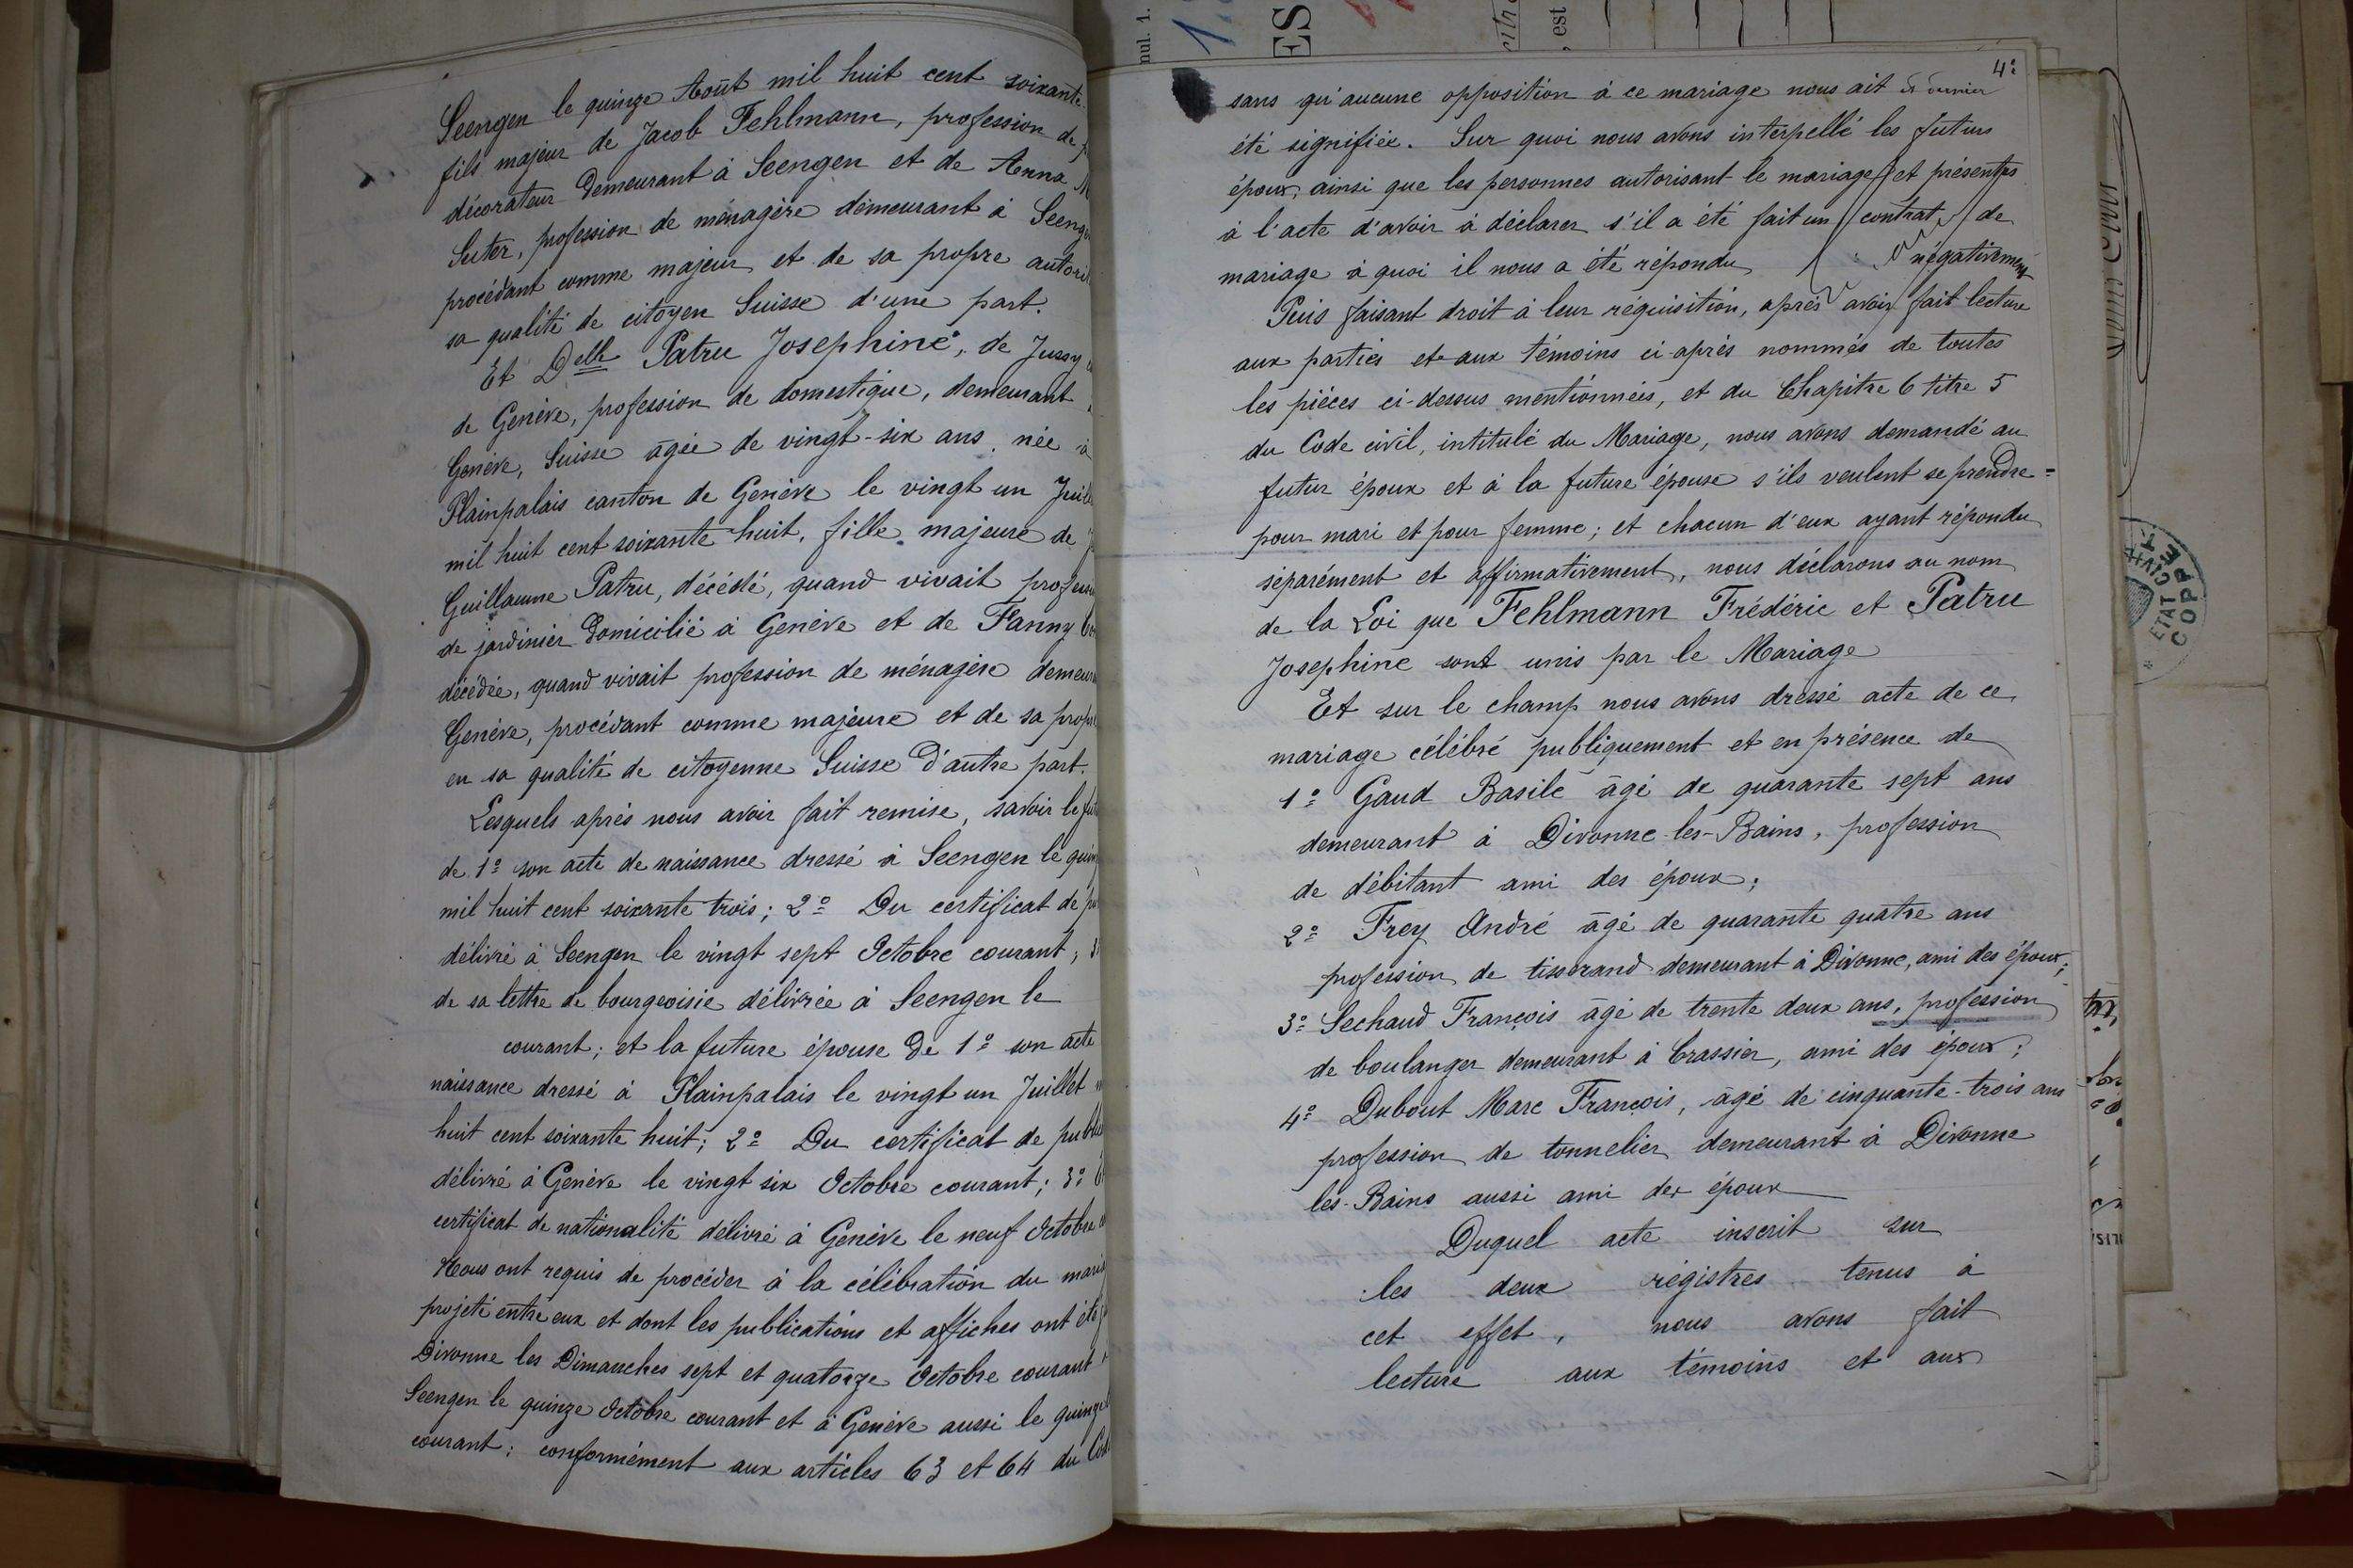 Seengen le quinze Août mil huit cent soixante
fils majeur de Jacob Fehlmann, profession de
décorateur demeurant à Seengen et de Anna
Suter, profession de ménagère demeurant à Seeng
procédant comme majeur et de sa propre autori
sa qualité de citoyen Suisse d'une part.
Et Delle Patru Josephine, de Jussy
de Genève, profession de domestique, demeurant
Genève, Suisse âgée de vingt-six ans, née à
Plainpalais canton de Genève le vingt un Juill
mil huit cent soixante huit, fille majeure de
Guillaume Patru, décédé, quand vivait profess
de jardinier domicilié à Genève et de Fanny
décédée, quand vivait profession de ménagère demeur
Genève, procédant comme majeure et de sa prop
en sa qualité de citoyenne Suisse d'autre part.
Lesquels après nous avoir fait remise, savoir le fu
de 1º son acte de naissance dressé à Seengen le quin
mil huit cent soixante trois; 2º Du certificat de pu
délivré à Seengen le vingt sept Octobre courant; 3º
de sa lettre de bourgeoisie délivrée à Seengen le
courant; et la future épouse de 1º son acte
naissance dressé à Plainpalais le vingt un Juillet
huit cent soixante huit; 2º Du certificat de publi
délivré à Genève le vingt six Octobre courant; 3º
certificat de nationalité délivré à Genève le neuf Octobre
Nous ont requis de procéder à la célébration du maria
projeté entre eux et dont les publications et affiches ont été
Divonne les Dimanches sept et quatorze Octobre courant
Seengen le quinze Octobre courant et à Genève aussi le quinze
courant; conformément aux articles 63 et 64 du Cod
4º
sans qu'aucune opposition à ce mariage nous ait
été signifiée. Sur quoi nous avons interpellé les futurs
époux, ainsi que les personnes autorisant le mariage et présentes
à l'acte d'avoir à déclarer s'il a été fait un contrat de
mariage à quoi il nous a été répondu négativement
Puis faisant droit à leur réquisition, après avoir fait lecture
aux parties et aux témoins ci-après nommés de toutes
les pièces ci-dessus mentionnées, et du Chapitre 6 titre 5
du Code civil, intitulé du Mariage, nous avons demandé au
futur époux et à la future épouse s'ils veulent se prendre=
pour mari et pour femme; et chacun d'eux ayant répondu
séparément et affirmativement, nous déclarons au nom
de la Loi que Fehlmann Frédéric et Patru
Josephine sont unis par le Mariage
Et sur le champ nous avons dressé acte de ce
mariage célébré publiquement et en présence de
1º Gaud Basile âgé de quarante sept ans
demeurant à Divonne-les-Bains, profession
de débitant ami des époux;
2º Frey André âgé de quarante quatre ans
profession de tisserand demeurant à Divonne, ami des époux;
3º Sechaud François âgé de trente deux ans, profession
de boulanger demeurant à Crassier, ami des époux;
4º Dubout Marc François, âgé de cinquante-trois ans
profession de tonnelier demeurant à Divonne
les-Bains aussi ami des époux
Duquel acte inscrit sur
les deux régistres tenus à
cet effet, nous avons fait
lecture aux témoins et aux
nul. 1.
ES
, est
ETAT CIVIL
COPPET